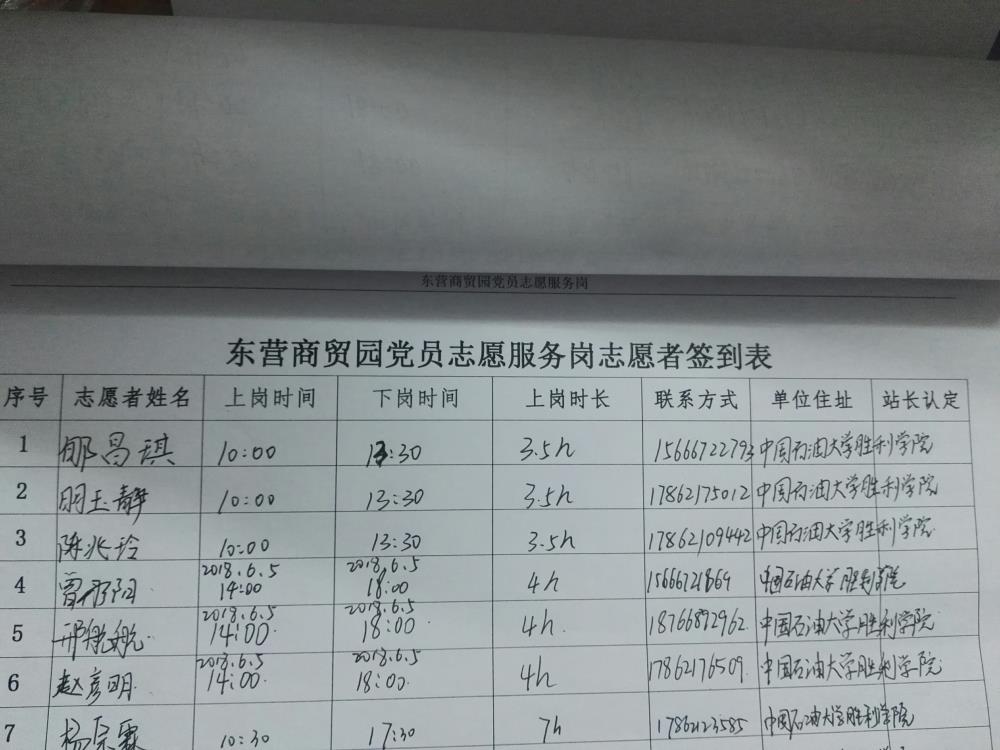 东营商贸园党员志愿服务岗
东营商贸园党员志愿服务岗志愿者签到表
序号 志愿者姓名 上岗时间 下岗时间 上岗时长 联系方式 单位住址 站长认定
1 郇昌琪 10:00 13:30 3.5h 15666722793 中国石油大学胜利学院
2 玉静 10:00 13:30 3.5h 17862175012 中国石油大学胜利学院
3 陈兆玲 10:00 13:30 3.5h 17862109442 中国石油大学胜利学院
2018.6.5 2018.6.5
4 阳 14:00 18:00 4h 中国石油大学胜利学院
2018.6.5 2018.6.5
5 邢航 14:00 18:00 4h. 18766892962 中国石油大学胜利学院
2018.6.5 2018.6.5
6 赵彦明 14:00 18:00 4h 17862176509 中国石油大学胜利学院
7 杨宗霖 10:30 17:30 7h 17862123585 中国石油大学胜利学院